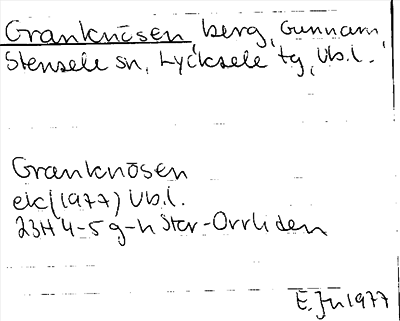 Granknösen, berg, Gunnarn,
Stensele sn, Lycksele tg, Vb.l.
Granknösen
ek (1977) Vb.l.
23H 4-5 g-h Stor-Orrliden
E. Jn 1977